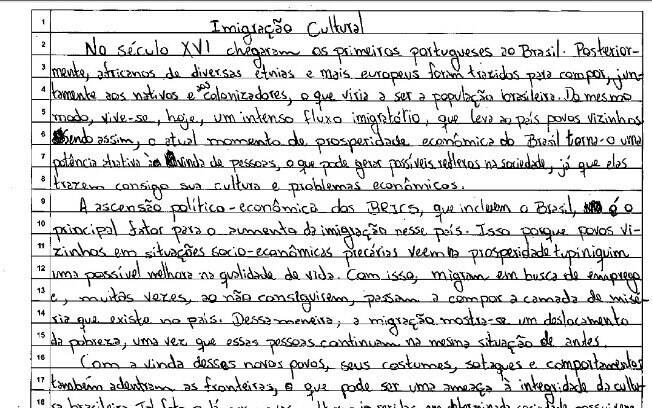 1 Imigração Cultural
2 No século XVI chegaram os primeiros portugueses ao Brasil. Posterior-
3 mente, africanos de diversas etnias e mais europeus foram trazidos para compor, jun-
4 tamente aos nativos e aos colonizadores, o que viria a ser a população brasileira. Do mesmo
5 modo, vive-se, hoje, um intenso fluxo imigratório, que leva ao país povos vizinhos
6 Sendo assim, o atual momento de prosperidade econômica do Brasil torna-o uma
7 potência atrativa à vinda de pessoas, o que pode gerar possíveis reflexos na sociedade, já que elas
8 trazem consigo sua cultura e problemas econômicos.
9 A ascensão político-econômica dos BRICS, que incluem o Brasil, é o
10 principal fator para o aumento da imigração nesse país. Isso porque povos vi-
11 zinhos em situações socio-econômicas precárias veem na prosperidade tupiniquim
12 uma possível melhora na qualidade de vida. Com isso, migram em busca de emprego
13 e, muitas vezes, ao não conseguirem, passam a compor a camada de misé-
14 ria que existe no país. Dessa maneira, a migração mostra-se um deslocamento
15 da pobreza, uma vez que essas pessoas continuam na mesma situação de antes.
16 Com a vinda desses novos povos, seus costumes, sotaques e comportamentos
17 também adentram as fronteiras, o que pode ser uma ameaça à integridade da cultu-
18 ra brasileira. Tal fato